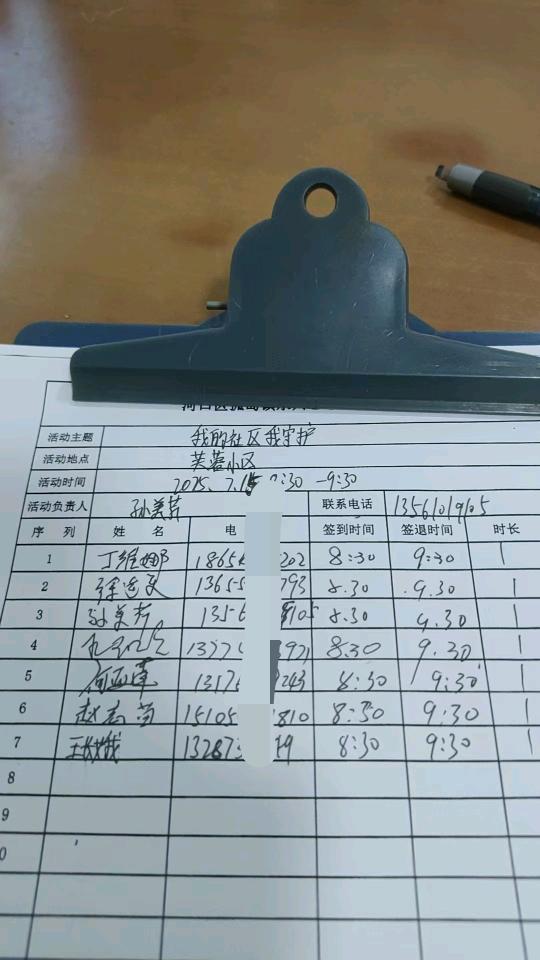 活动主题 我的社区我守护
活动地点 芙蓉小区
活动时间 2025. 7.15 8:30 -9:30
活动负责人 孙美芳 联系电话 13561019105
序 列 姓 名 电 签到时间 签退时间 时长
1 丁维娜 1865 202 8:30 9:30 1
2 1365 793 8.30 9.30 1
3 孙美芳 1356 9105 8.30 9.30 1
4 1377 3971 8.30 9.30 1
5 1317 243 8:30 9:30 1
6 赵志苗 15105 810 8:30 9:30 1
7 13287 8:30 9:30 1
8
9
0